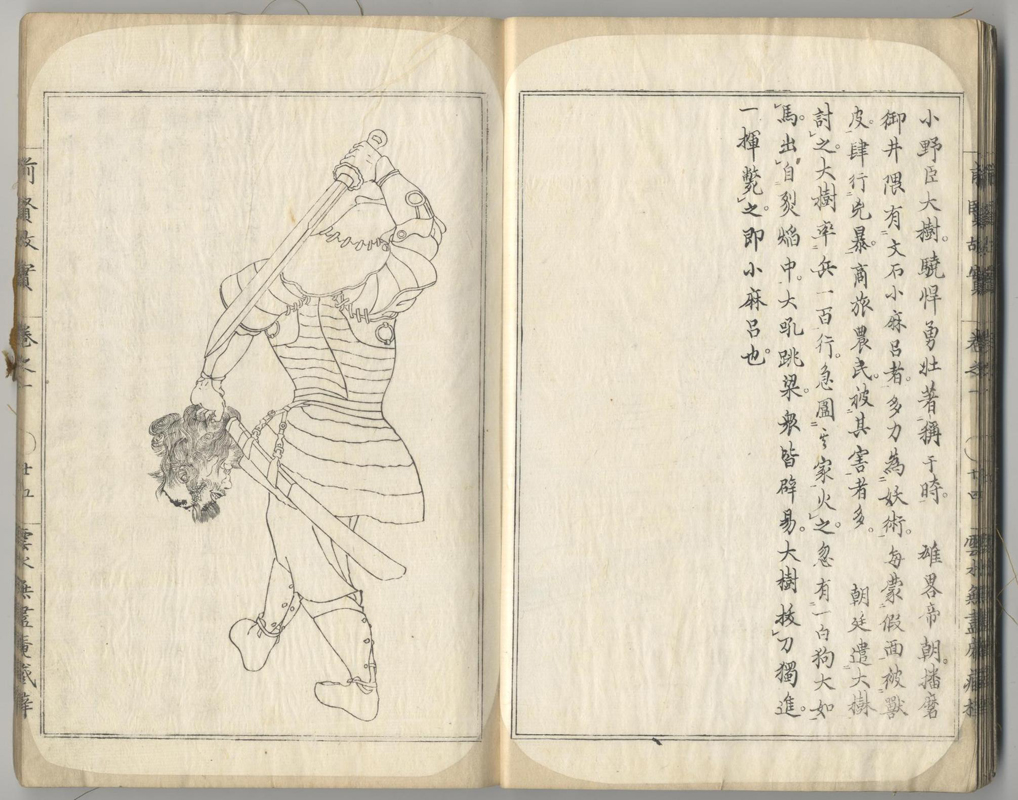 小野臣大樹。驍悍勇壮著稱于時。　雄畧帝朝。播磨
御井隈有文石小麻呂者。多力為妖術。每蒙假面被獸
皮。肆行兇暴。商旅農民。被其害者多。　朝廷遣大樹
討之。大樹率兵一百行。急圍其家火之。忽有一白狗大如
馬。出自烈焔中。大吼跳梁。衆皆辟易。大樹拔刀獨進。
一揮斃之。即小麻呂也。
前賢故實
卷之一
廿四
前賢故實
卷之一
廿五